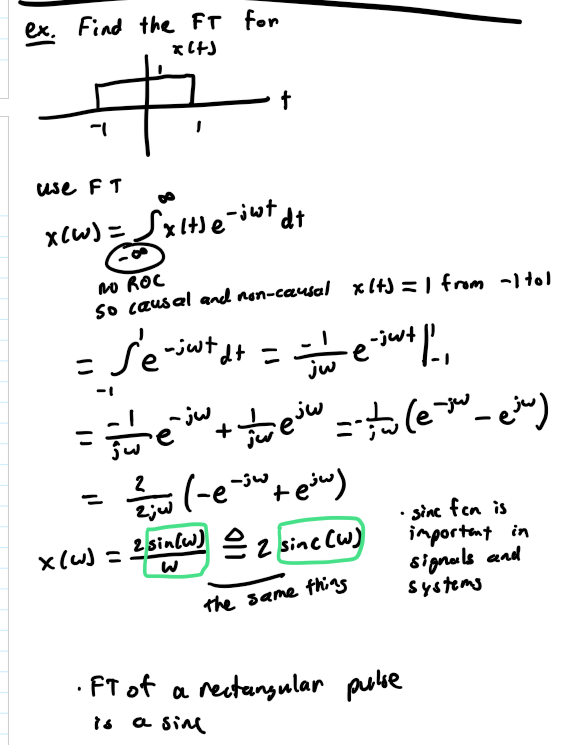 ex. Find the FT for
x(t)
1
t
-1 1
use FT
x(ω) = ∫_{-∞}^{∞} x(t) e^{-jωt} dt
no ROC
so causal and non-causal x(t) = 1 from -1 to 1
= ∫_{-1}^{1} e^{-jωt} dt = \frac{-1}{jω} e^{-jωt} |_{-1}^{1}
= \frac{-1}{jω} e^{-jω} + \frac{1}{jω} e^{jω} = -\frac{1}{jω} (e^{-jω} - e^{jω})
= \frac{2}{2jω} (-e^{-jω} + e^{jω})
x(ω) = \frac{2 sin(ω)}{ω} ≜ 2 sinc(ω)
the same thing
· sinc fcn is
important in
signals and
systems
· FT of a rectangular pulse
is a sinc